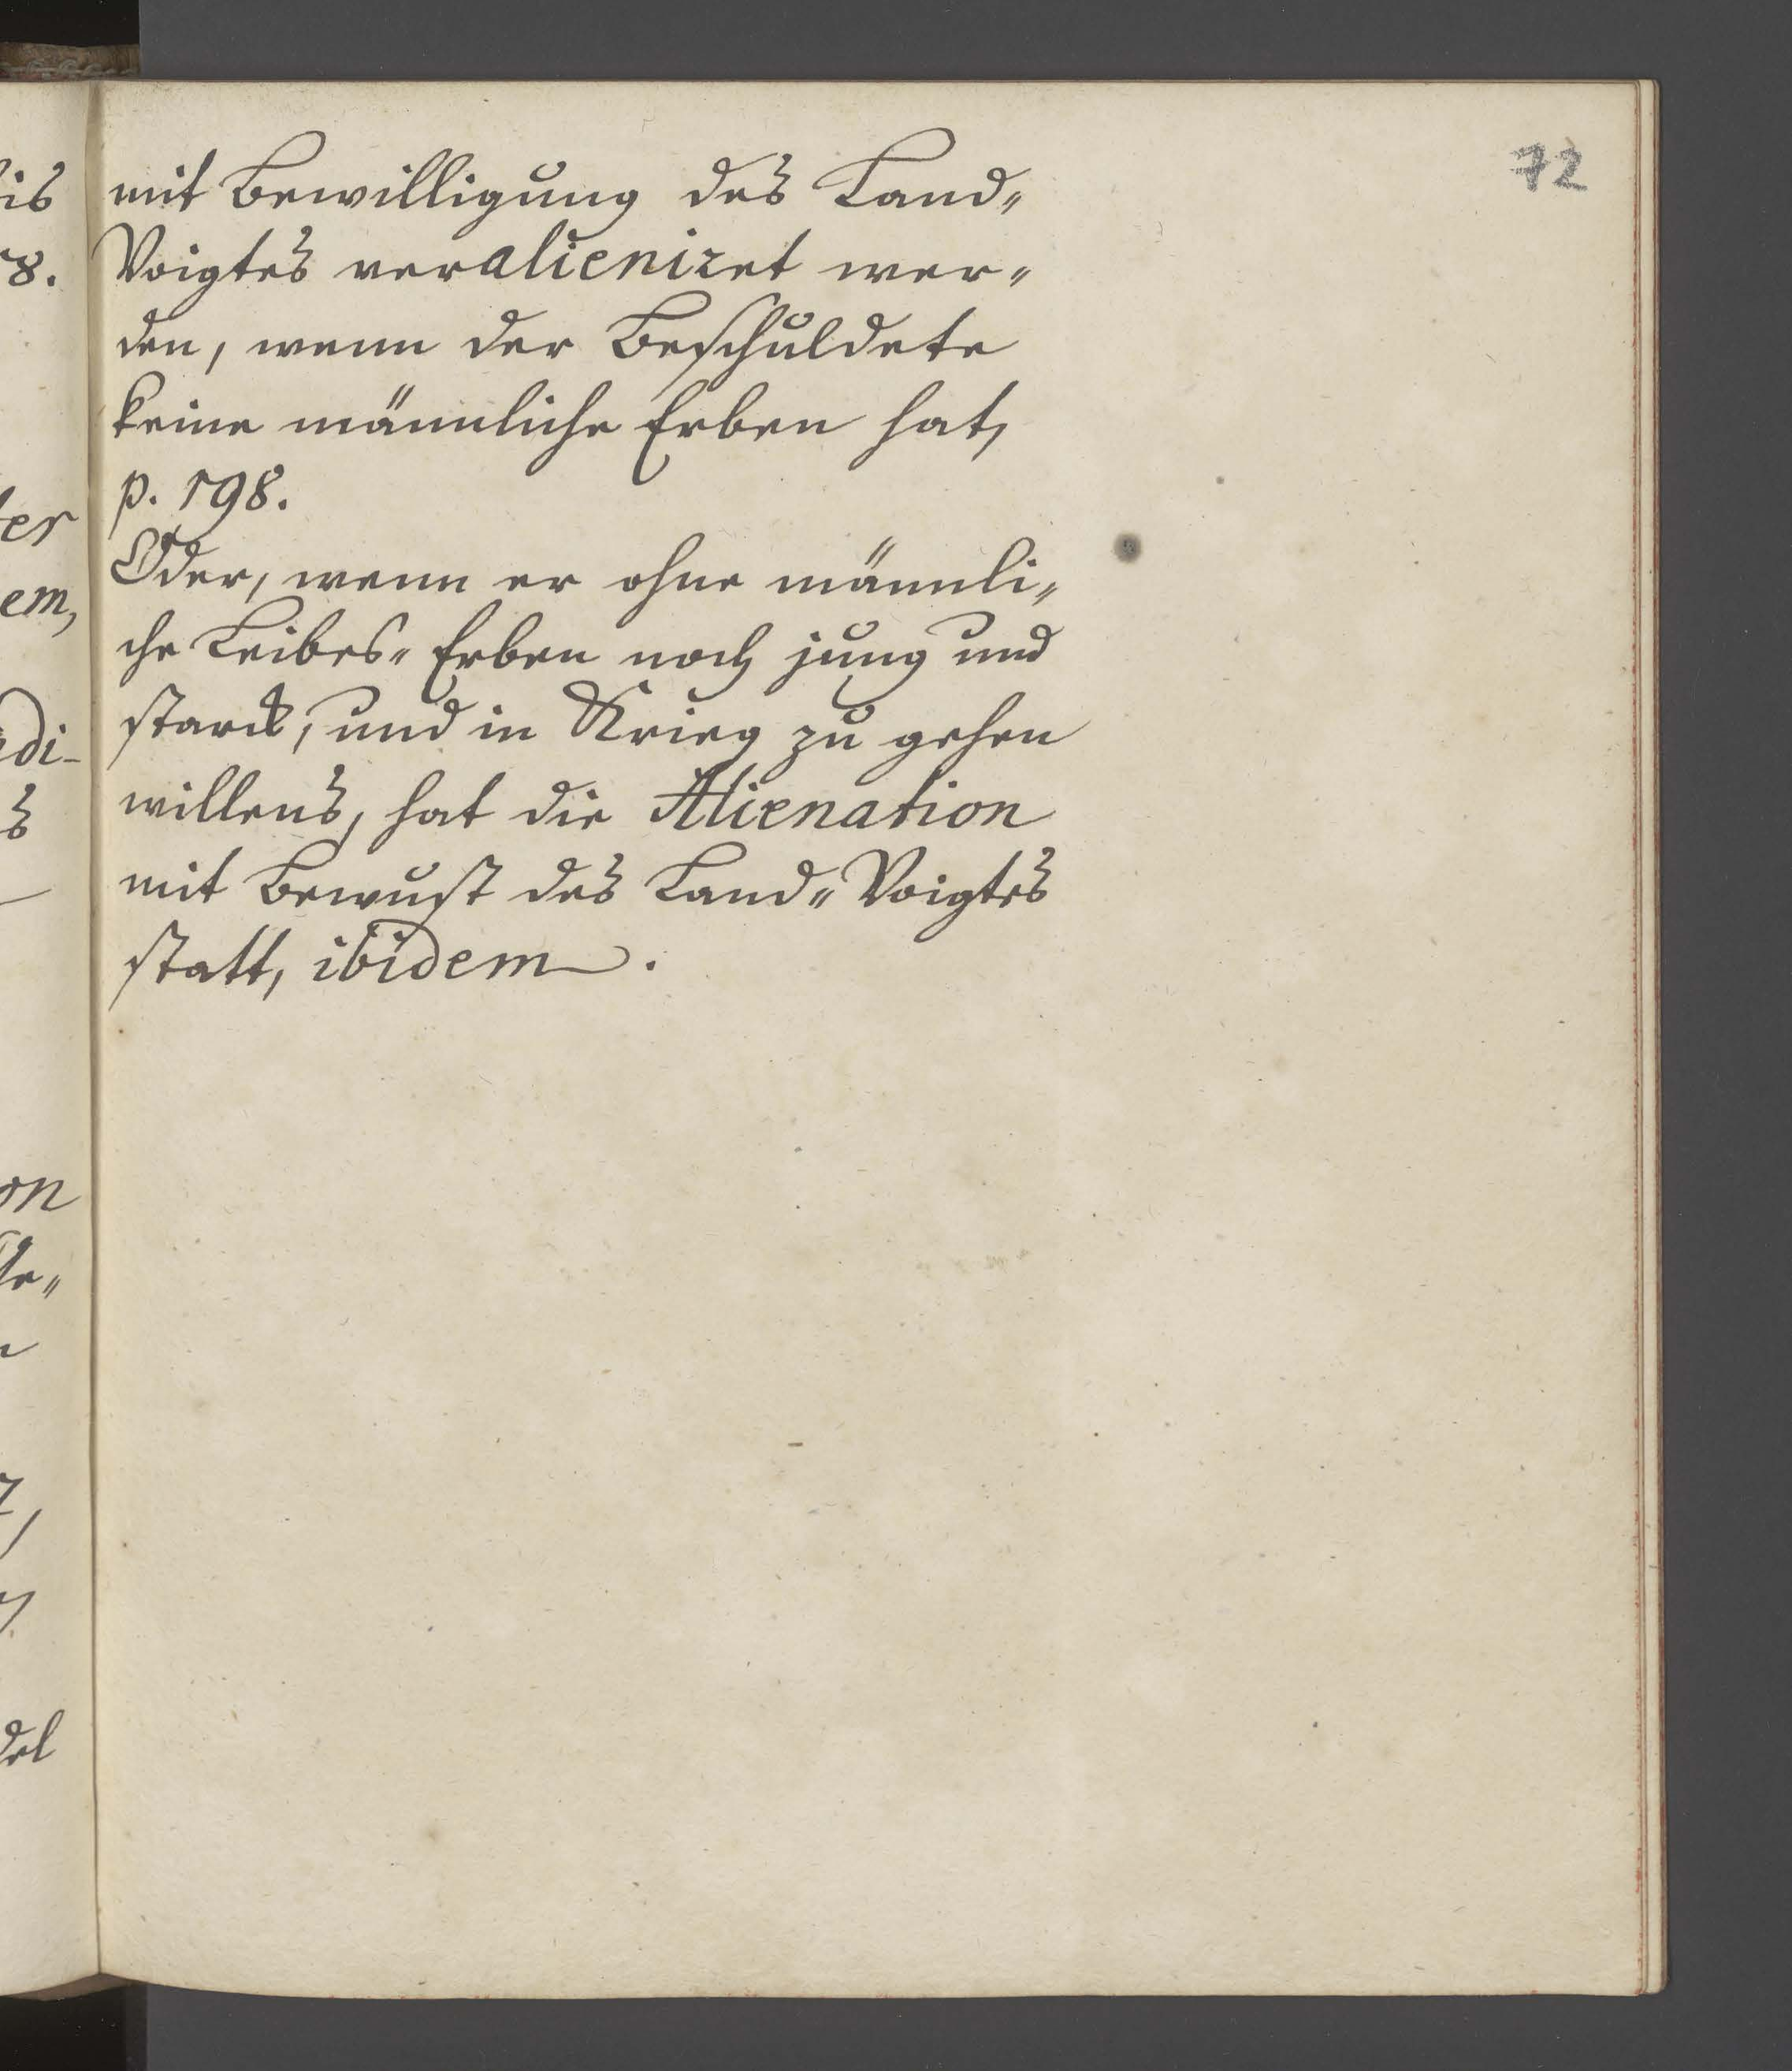 72
mit Bewilligung des Land„
Voigtes veralieniret wer„
den, wenn der Beschuldete
keine männliche Erben hat,
p. 198.
Oder, wenn er ohne männli„
che Leibes„ Erben noch jung und
starck, und in Krieg zu gehen
willens, hat die Alienation
mit Bewust des Land„ Voigtes
statt, ibidem.